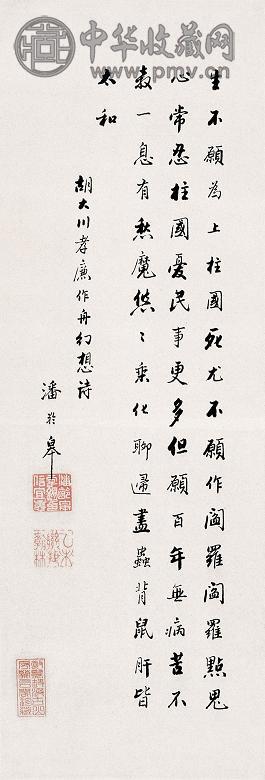 中华收藏网
生不願為上柱國死尤不願作閻羅閻羅點鬼
心常忍柱國憂民事更多但願百年無病苦不
教一息有愁魔悠〻乘化聊歸盡蟲背鼠肝皆
太和
胡大川孝廉作舟幻想詩
潘龄皋